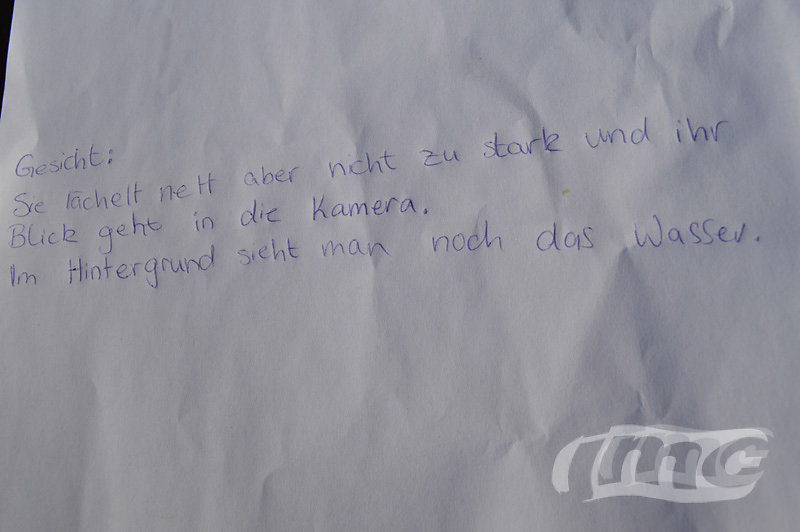 Gesicht:
Sie lächelt nett aber nicht zu stark und ihr
Blick geht in die Kamera.
Im Hintergrund sieht man noch das Wasser.
nmc